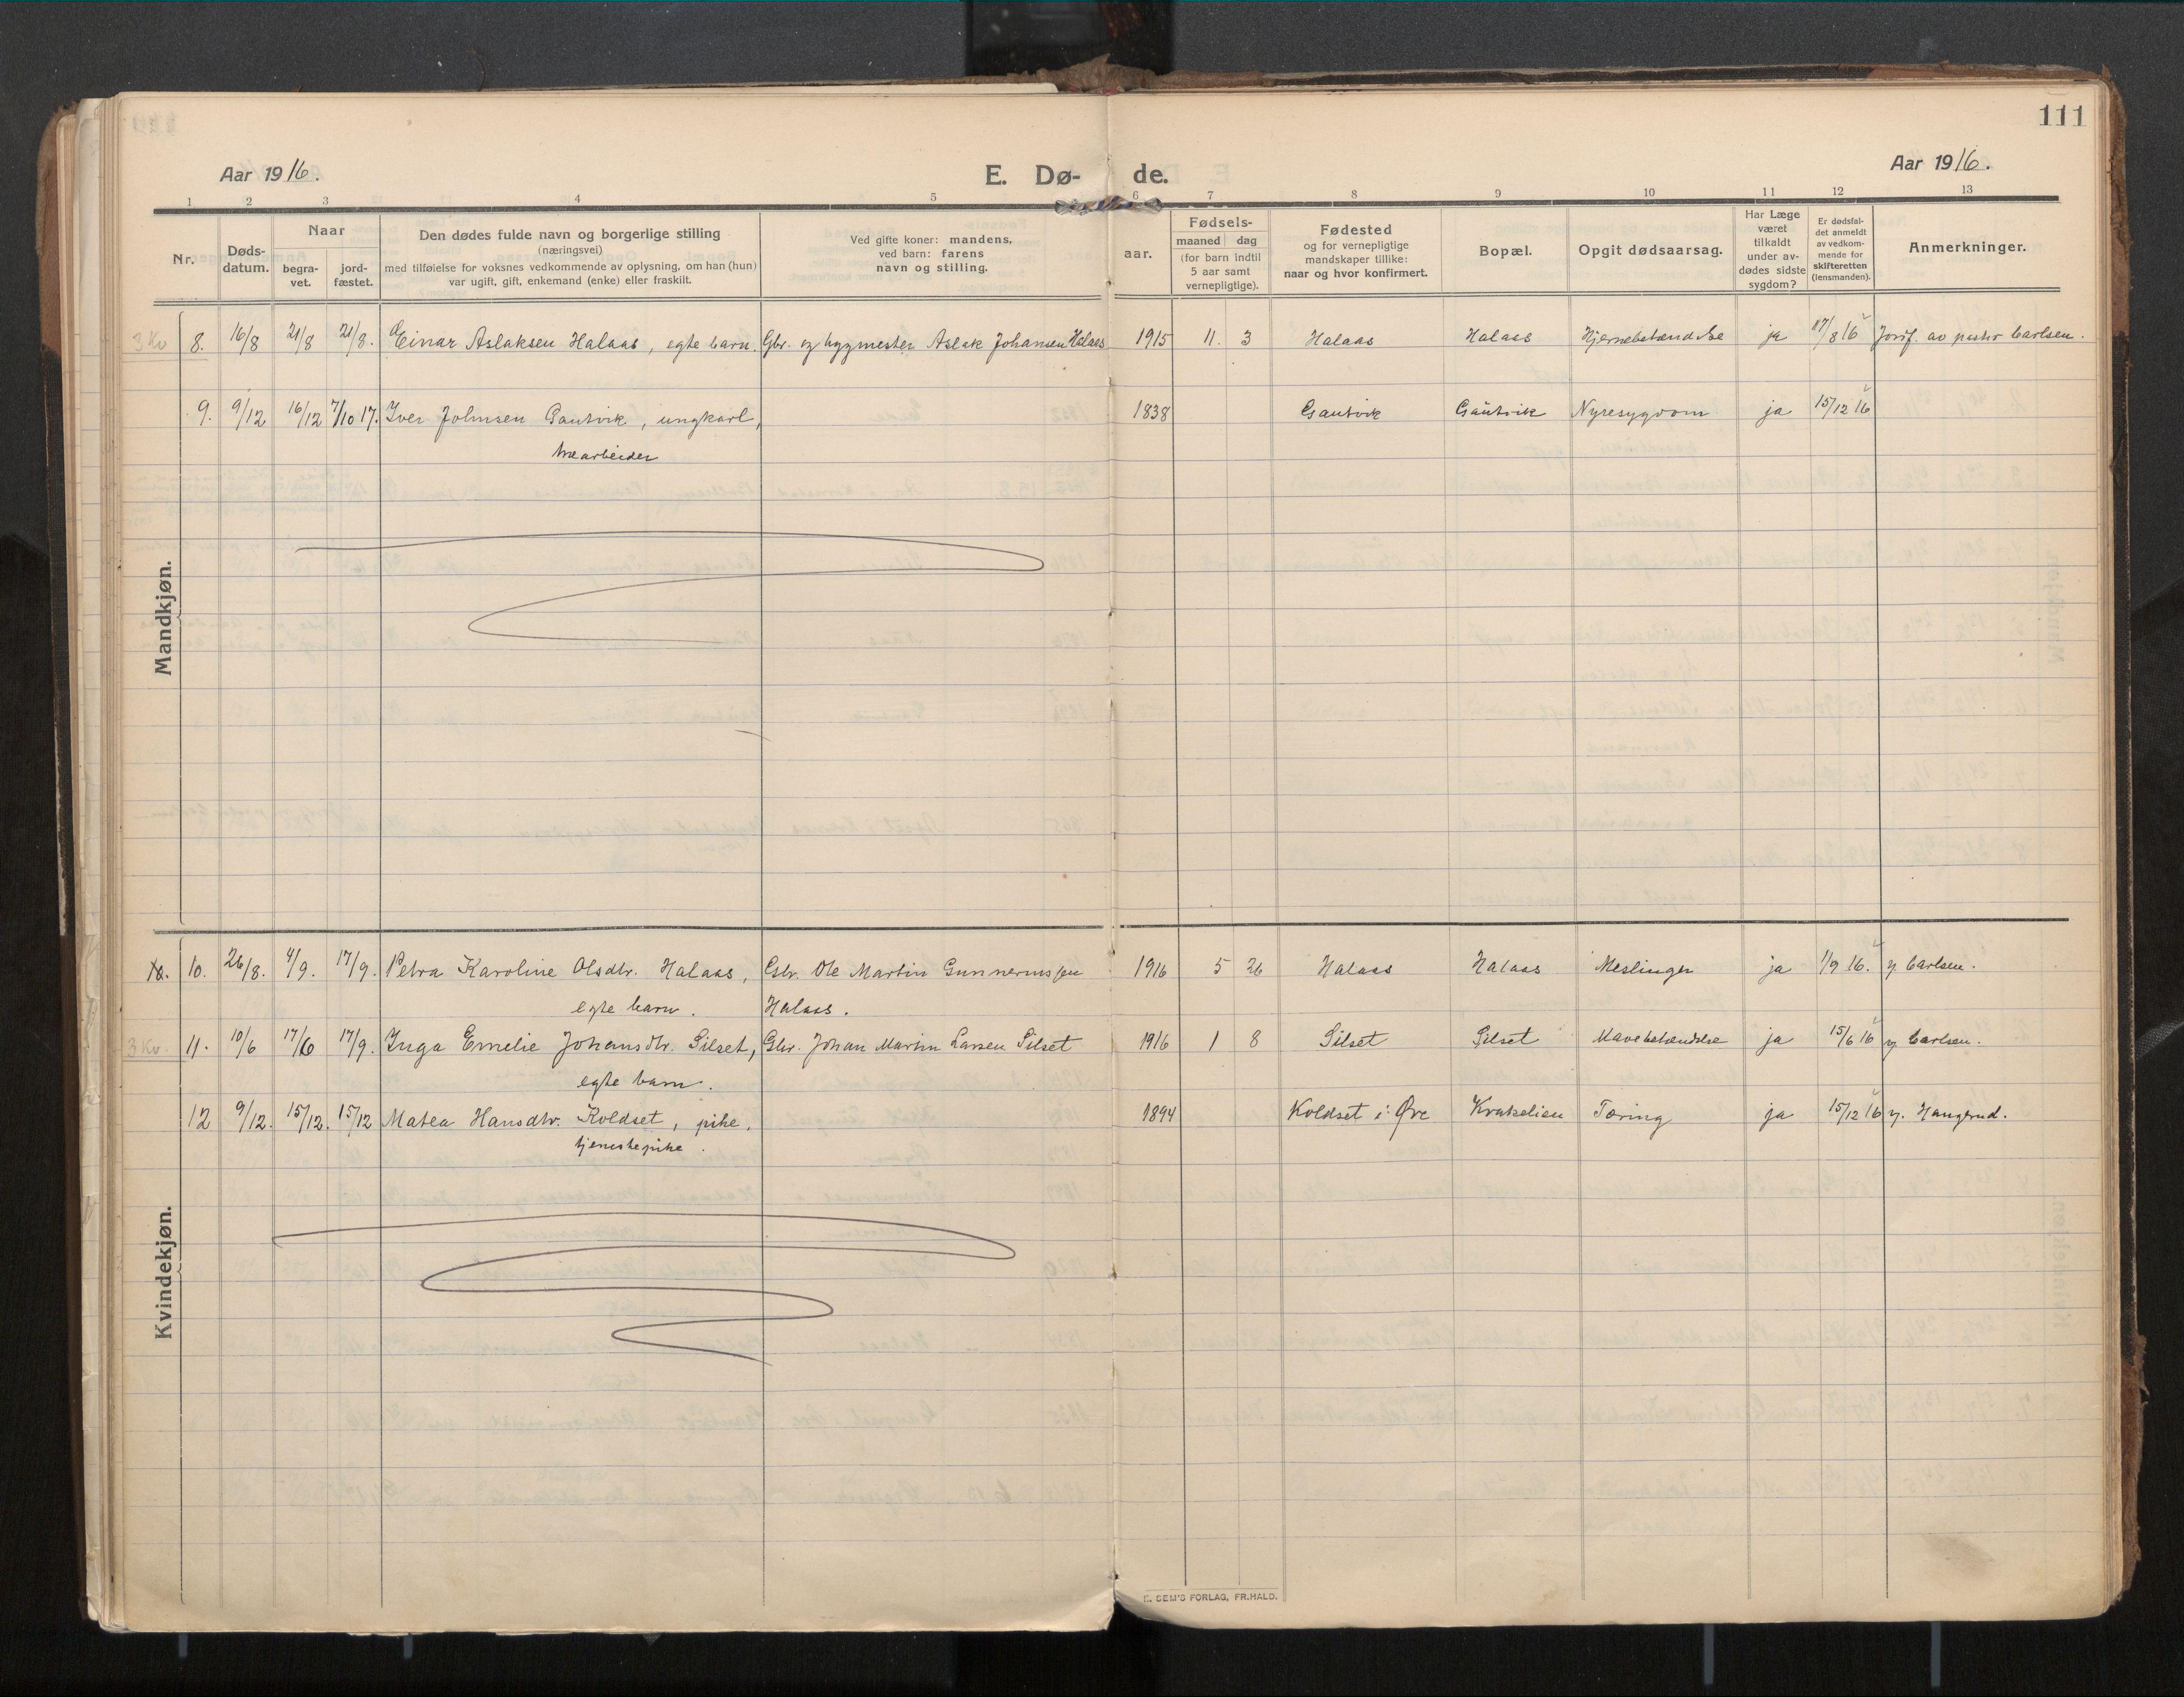 111
Aar 1916.
E. Dø- de.
Aar 1916.
1 2 3 4 5 6 7 8 9 10 11 12 13
Nr.
Døds-
datum.
Naar
begra-
vet.
jord-
fæstet.
Den dødes fulde navn og borgerlige stilling
(næringsvei)
med tilføielse for voksnes vedkommende av oplysning, om han (hun)
var ugift, gift, enkemand (enke) eller fraskilt.
Ved gifte koner: mandens,
ved barn: farens
navn og stilling.
aar.
Fødsels-
maaned dag
(for barn indtil
5 aar samt
vernepligtige).
Fødested
og for vernepligtige
mandskaper tillike:
naar og hvor konfirmert.
Bopæl.
Opgit dødsaarsag.
Har Læge
været
tilkaldt
under av-
dødes sidste
sygdom?
Er dødsfal-
det anmeldt
av vedkom-
mende for
skifteretten
(lensmanden).
Anmerkninger.
Mandkjøn.
3 Kv 8. 16/8 21/8 21/8. Einar Aslaksen Halaas, egte barn. Gbr. og bygmester Aslak Johansen Halaas 1915 11. 3 Halaas Halaas Hjernebetændelse ja 17/8 16 Jordf. av pastor Carlsen.
9. 9/12 16/12 7/10 17. Iver Johnsen Gautvik, ungkarl, 1838 Gautvik Gautvik Nyresygdom ja 15/12 16
træarbeider
Kvindekjøn.
10. 26/8. 4/9. 17/9. Petra Karoline Olsdtr. Halaas, Gbr. Ole Martin Gunnerussen 1916 5 26 Halaas Halaas Meslinger ja 1/9 16. Carlsen.
egte barn. Halaas.
3 Kv. 11. 10/6 17/6 17/9. Inga Emelie Johansdtr. Silset, Gbr. Johan Martin Larsen Silset 1916 1 8 Silset Silset Mavebetændelse ja 15/6 16 Carlsen.
egte barn.
12 9/12. 15/12. 15/12 Matea Hansdtr. Koldset, pike, 1894 Koldset i Øre Krakelien Tæring ja 15/12 16 Haugerud.
tjenestepike.
SEM'S FORLAG, FR.HALD.